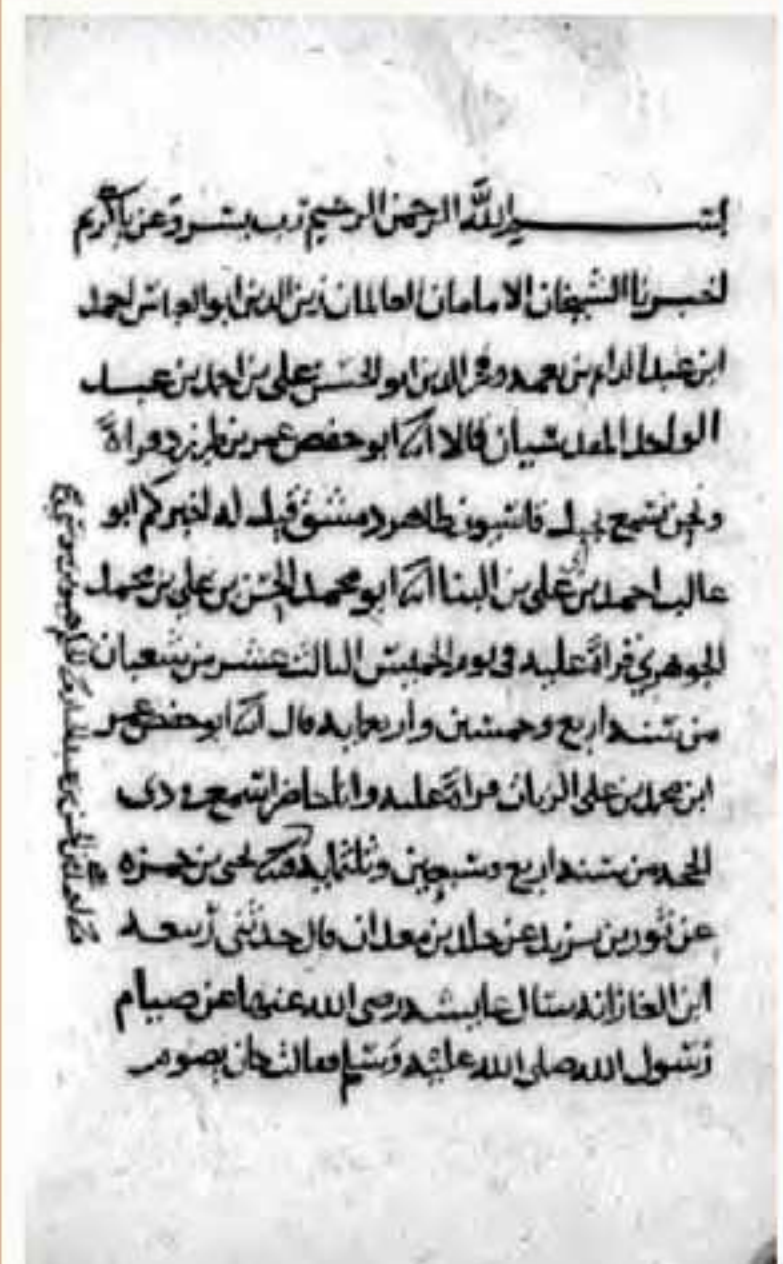 بسم الله الرحمن الرحيم رب يسر وعن يا كريم
اخبرنا الشيخان الامامان العالمان زين الدين ابو العباس احمد
ابن عبد الدايم بن نعمه وفخر الدين ابو الحسن علي بن احمد بن عبد
الواحد المقدسيان قالا انا ابو حفص عمر بن طبرزد قراةً
ونحن نسمع بجبل قاسيون ظاهر دمشق قيل له اخبركم ابو
غالب احمد بن علي بن البنا انا ابو محمد الحسن بن علي بن محمد
الجوهري قراةً عليه في يوم الخميس الثالث عشر من شعبان
من سنه اربع وخمسين واربعمايه قال انا ابو حفص عمر
ابن محمد بن علي الزيات قراةً عليه وانا حاضر اسمع في ذي
الحجه من سنه اربع وسبعين وثلثمايه يحيى بن حمزه
عن ثور بن يزيد عن خالد بن معدان قال حدثني ربيعه
ابن الغاز انه سال عايشه رضي الله عنها عن صيام
رسول الله صلى الله عليه وسلم فقالت كان يصوم